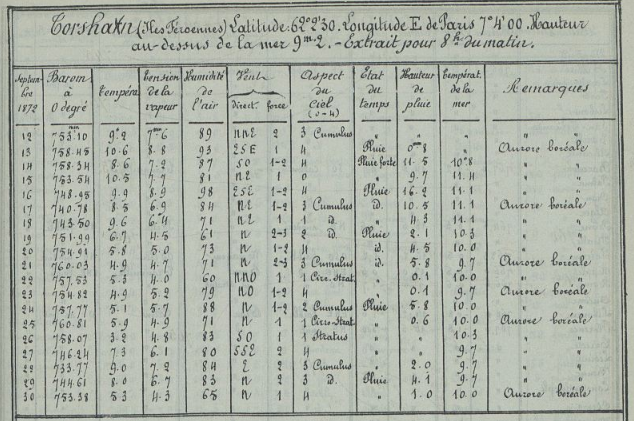 Torshavn (Iles Féroennes) Latitude 62°2'30. Longitude E de Paris 7°4'00. Hauteur
au-dessus de la mer 9m.2. - Extrait pour 8h du matin.
Septembre 1872 Barom à 0 degré Tempéra. Tension de la vapeur Humidité de l'air Vent direct. force Aspect du Ciel (0-4) Etat du temps Hauteur de pluie Températ. de la mer Remarques
12 753.10 9°2 7mm6 89 NNE 2 3 Cumulus " " " "
13 758.45 10.6 8.8 93 ESE 1 4 Pluie 0mm8 " Aurore boréale
14 758.34 8.6 7.2 87 SO 1-2 4 Pluie forte 11.5 10°8 " "
15 753.54 10.5 7.7 81 NE 1 0 " 9.7 11.4 " "
16 748.95 9.9 8.9 98 ESE 1-2 4 Pluie 16.2 11.1 " "
17 740.78 8.5 6.9 84 NE 1-2 3 Cumulus id. 10.5 11.1 Aurore boréale
18 743.50 9.6 6.4 71 NE 1 1 id. " 4.3 11.1 " "
19 751.99 6.7 4.5 61 N 2-3 2 id. Pluie 2.1 10.3 " "
20 754.91 5.8 5.0 73 N 1-2 4 id. 4.5 10.0 " "
21 760.03 4.9 4.7 71 N 2-3 3 Cumulus id. 5.8 9.7 Aurore boréale
22 757.53 5.3 4.0 60 NNO 1 1 Cirr. Strat. " 0.1 10.0 " "
23 754.82 4.9 5.2 79 NO 1-2 4 " 0.1 9.7 Aurore boréale
24 757.77 5.1 5.7 88 N 1-2 2 Cumulus Pluie 5.8 10.0 " "
25 760.81 5.9 4.9 71 N 1 1 Cirro-Strat. " 0.6 10.0 Aurore boréale
26 758.07 3.2 4.8 83 SO 1 1 Stratus " " 10.3 " "
27 746.24 7.3 6.1 80 SSE 2 4 " " 9.7 " "
28 733.77 9.0 7.2 84 E 2 3 Cumulus " 2.0 9.7 " "
29 744.61 8.0 6.7 83 N 2 3 id. Pluie 4.1 9.7 " "
30 753.38 5.3 4.3 65 N 1 4 " 1.0 10.0 Aurore boréale